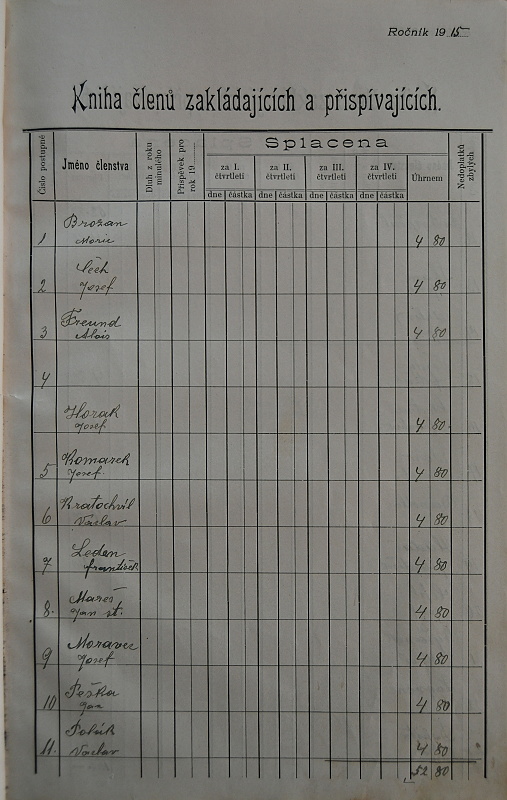 Ročník 1915
Kniha členů zakládajících a přispívajících.
Číslo postupné
Jméno členstva
Dluh z roku minulého
Příspěvek pro rok 19
Splacena
za I. čtvrtletí
za II. čtvrtletí
za III. čtvrtletí
za IV. čtvrtletí
Úhrnem
Nedoplatků zbylých
dne částka dne částka dne částka dne částka
Brožan
1 Moric 4 80
Čech
2 Josef 4 80
Freund
3 Alois 4 80
4
Horak
Josef 4 80
Komarek
5 Josef 4 80
Kratochvíl
6 Václav 4 80
Leden
7 František 4 80
Mareš
8. Jan st. 4 80
Moravec
9 Josef 4 80
Peška
10 Jan 4 80
Polák
11. Václav 4 80
52 80